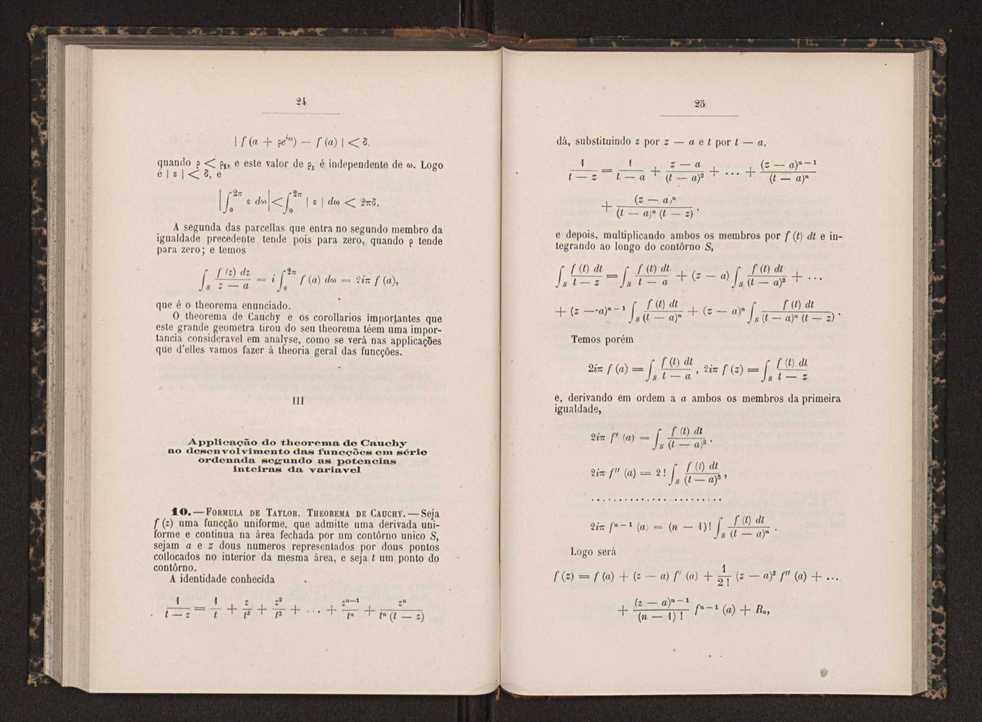 24
| f (a + ρe^{iω}) — f (a) | < δ.
quando ρ < ρ₁, e este valor de ρ₁ é independente de ω. Logo
é | ε | < δ, e
| ∫_0^{2π} ε dω | < ∫_0^{2π} | ε | dω < 2πδ.
A segunda das parcellas que entra no segundo membro da
igualdade precedente tende pois para zero, quando ρ tende
para zero; e temos
∫_s f (z) dz / (z — a) = i ∫_0^{2π} f (a) dω = 2iπ f (a),
que é o theorema enunciado.
O theorema de Cauchy e os corollarios importantes que
este grande geometra tirou do seu theorema téem uma impor-
tancia consideravel em analyse, como se verá nas applicações
que d'elles vamos fazer á theoria geral das funcções.
III
Applicação do theorema de Cauchy
ao desenvolvimento das funcções em série
ordenada segundo as potencias
inteiras da variavel
10. — Formula de Taylor. Theorema de Cauchy. — Seja
f (z) uma funcção uniforme, que admitte uma derivada uni-
forme e continua na área fechada por um contôrno unico S,
sejam a e z dous numeros representados por dous pontos
collocados no interior da mesma área, e seja t um ponto do
contôrno.
A identidade conhecida
1/(t — z) = 1/t + z/t² + z²/t³ + ... + z^{n—1}/t^n + z^n/(t^n (t — z))
25
dá, substituindo z por z — a e t por t — a,
1/(t — z) = 1/(t — a) + (z — a)/(t — a)² + ... + (z — a)^{n—1}/(t — a)^n
+ (z — a)^n/((t — a)^n (t — z)),
e depois, multiplicando ambos os membros por f (t) dt e in-
tegrando ao longo do contôrno S,
∫_S f (t) dt/(t — z) = ∫_S f (t) dt/(t — a) + (z — a) ∫_S f (t) dt/(t — a)² + ...
+ (z — a)^{n—1} ∫_S f (t) dt/(t — a)^n + (z — a)^n ∫_S f (t) dt/((t — a)^n (t — z)).
Temos porém
2iπ f (a) = ∫_S f (t) dt/(t — a), 2iπ f (z) = ∫_S f (t) dt/(t — z)
e, derivando em ordem a a ambos os membros da primeira
igualdade,
2iπ f′ (a) = ∫_S f (t) dt/(t — a)²,
2iπ f″ (a) = 2! ∫_S f (t) dt/(t — a)³,
. . . . . . . . . . . . . . . . . . . . . . .
2iπ f^{n—1} (a) = (n — 1)! ∫_S f (t) dt/(t — a)^n.
Logo será
f (z) = f (a) + (z — a) f′ (a) + 1/2! (z — a)² f″ (a) + ...
+ (z — a)^{n—1}/(n — 1)! f^{n—1} (a) + R_n,